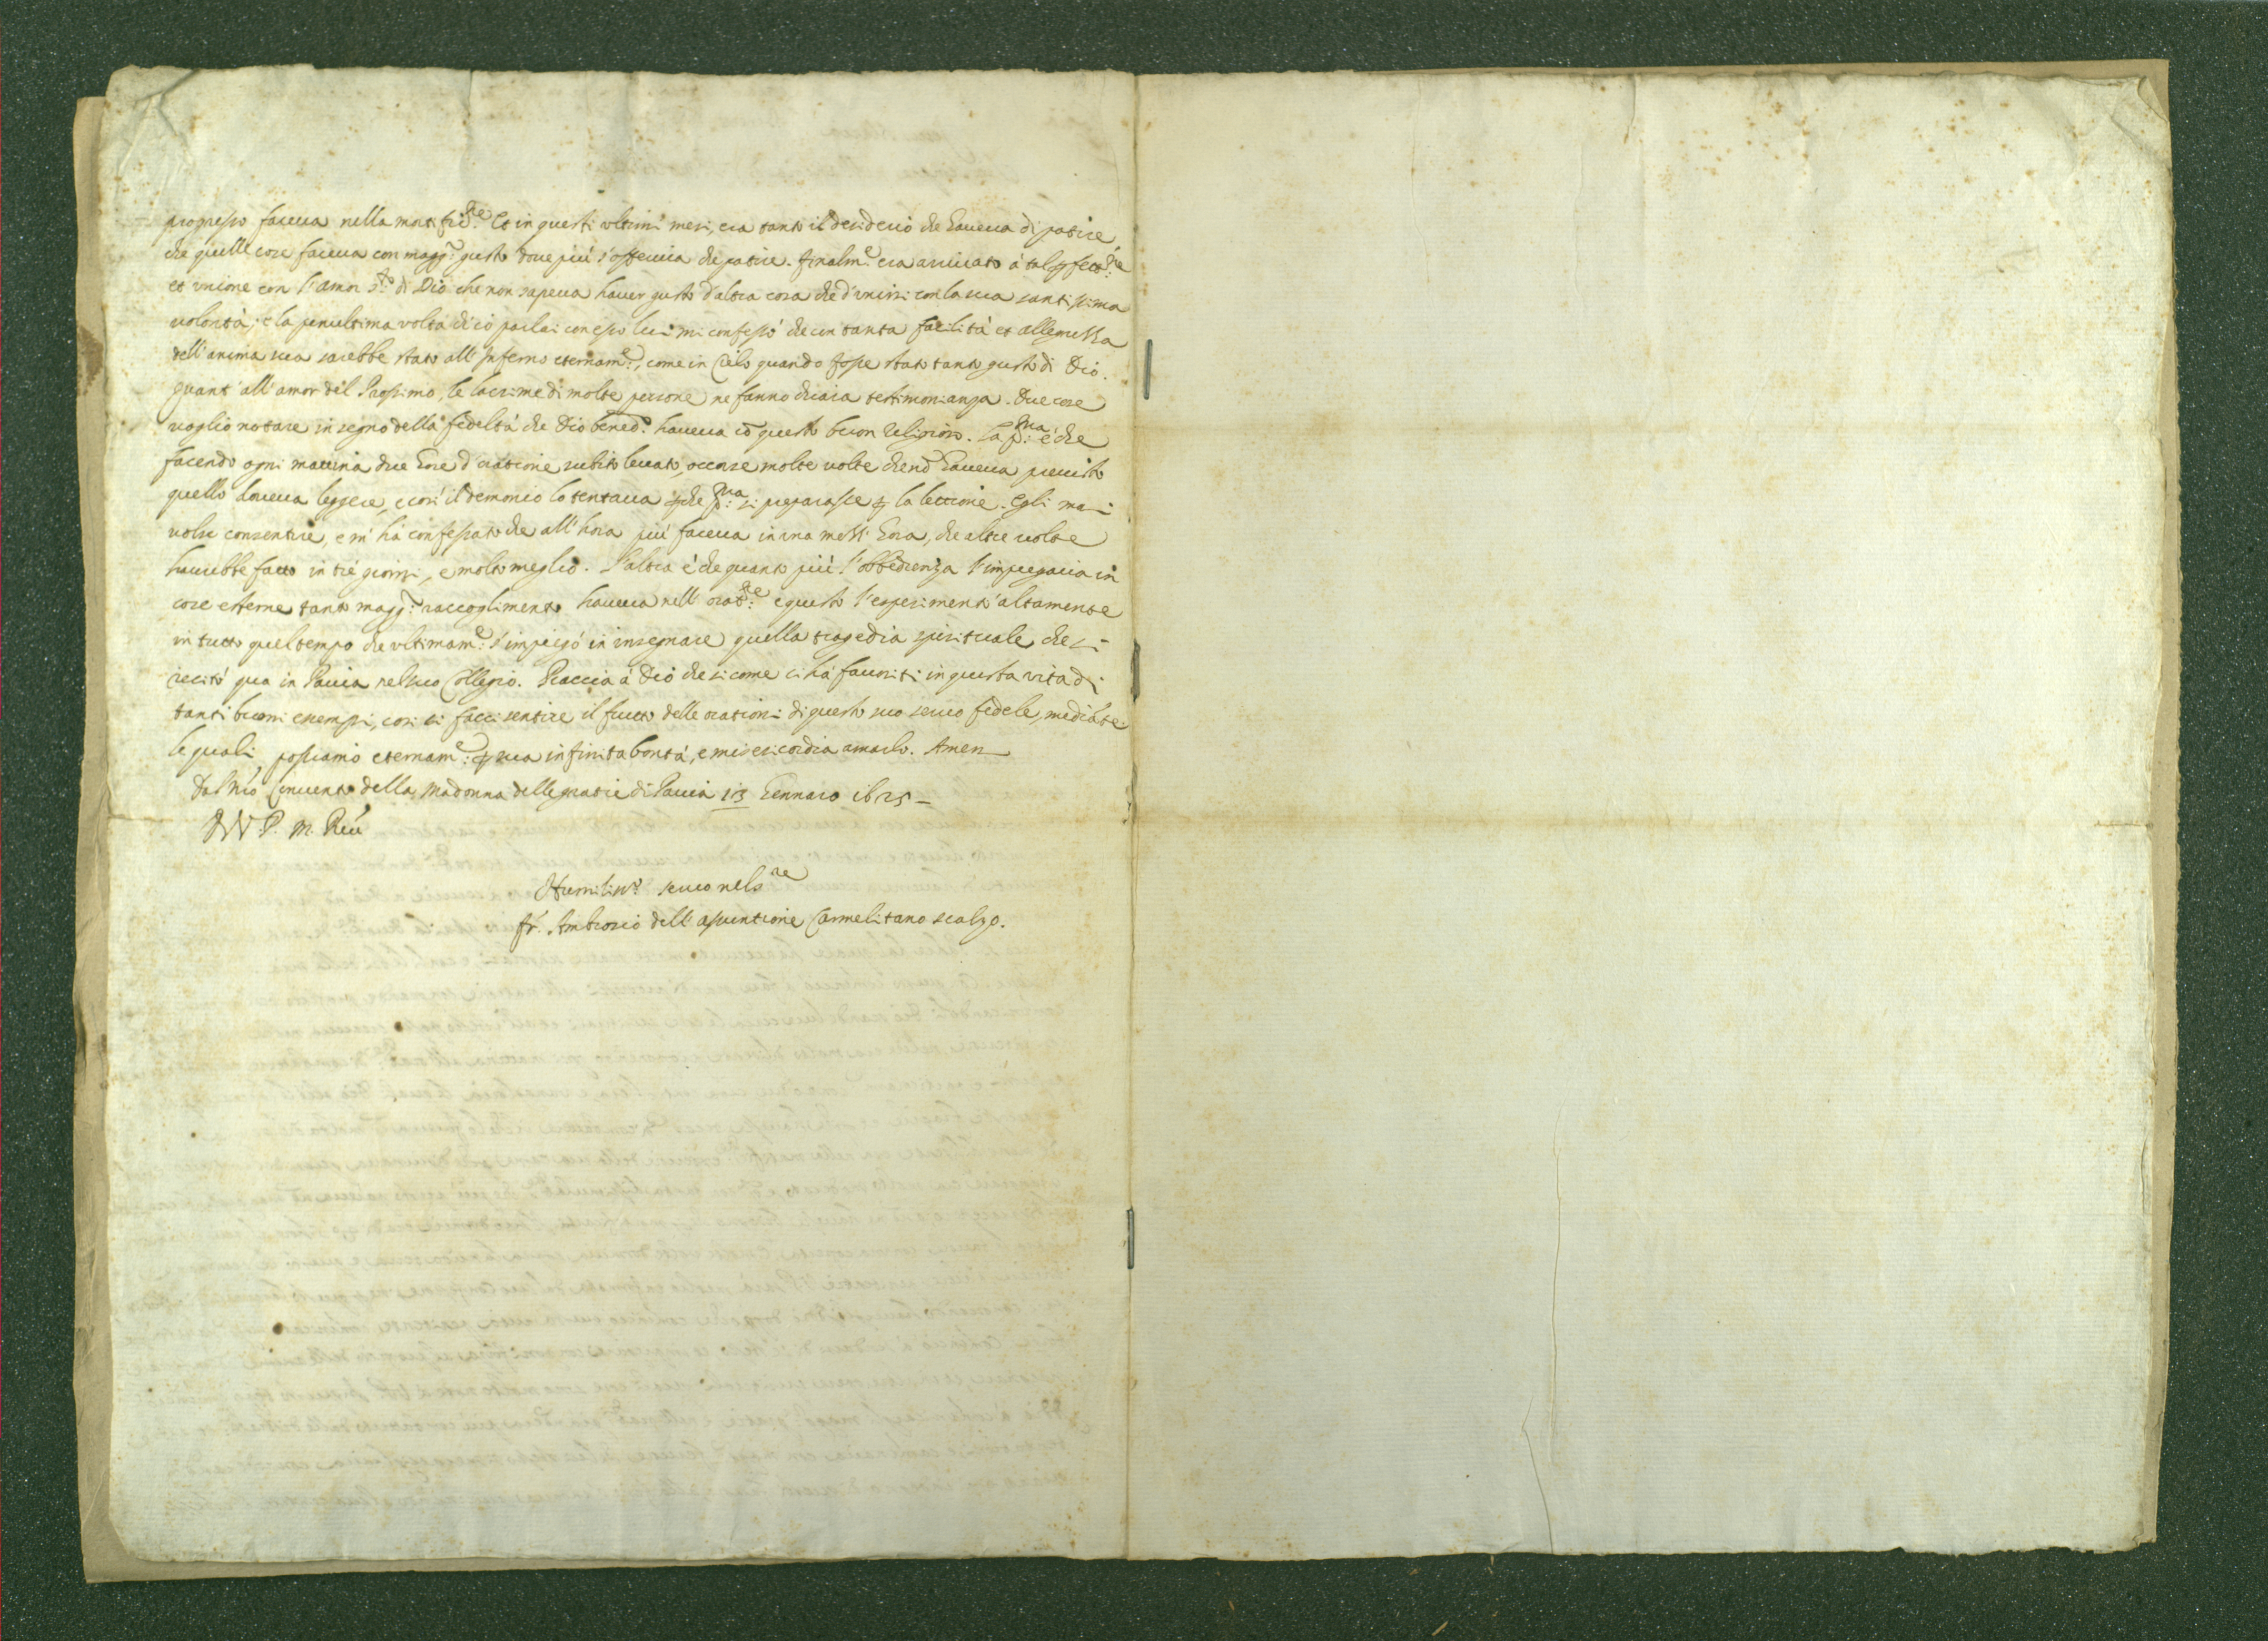 progresso faceua nella mortific.ne Et in questi vltimi mesi, era tanto il desiderio che haueua di patire
che quelle cose faceua con magg.r gusto doue più s'offeriua che patire. finalm.e era arriuato à tal ꝑfett.ne
et vnione con l'amor s.to di Dio che non sapeua hauer gusto d'altra cosa che d'vnirsi con la sua santissima
volontà; e la penultima volta di ciò parlai con esso lui mi confessò che con tanta facilità et allegrezza
dell'anima sua sarebbe stato all'Inferno eternam.e, come in Cielo quando fosse stato tanto gusto di Dio.
quant' all'amor del Prossimo, le lacrime di molte persone ne fanno chiara testimonianza. Due cose
voglio notare in segno della fedeltà che Dio bened.o haueua cō questo buon Religioso. La p.ma è che
facendo ogni mattina due hore d'oratione subito leuato, occorse molte volte che nō haueua preuisto
quello doueua leggere, e così il demonio lo tentaua ꝑche p.ma si preparasse ꝑ la lettione. Egli mai
volse consentire, e m'hà confessato che all'hora più faceua in una mezz'hora, che altre volte
haurebbe fatto in trè giorni, e molto meglio. L'altra è che quanto più l'obbedienza l'impiegaua in
cose esterne tanto magg.r raccoglimento haueua nell'orat.ne: e questo l'esperimentò altamente
in tutto quel tempo che vltimam.e s'impiegò in insegnare quella tragedia spirituale che si
recitò qua in Pauia nel suo Collegio. Piaccia à Dio che si come ci hà fauoriti in questa vita di
tanti buoni essempi, così ci facci sentire il frutto delle orationi di questo suo seruo fedele, mediāte
le quali possiamo eternam.e ꝑ sua infinita bontà, e misericordia amarlo. Amen
Dal nrō Conuento della Madonna delle gratie di Pauia 13 Gennaro 1625
D V P. M. Reu.
Humiliss.o seruo nel s.re
fr. Ambrosio dell'assuntione Carmelitano scalzo.